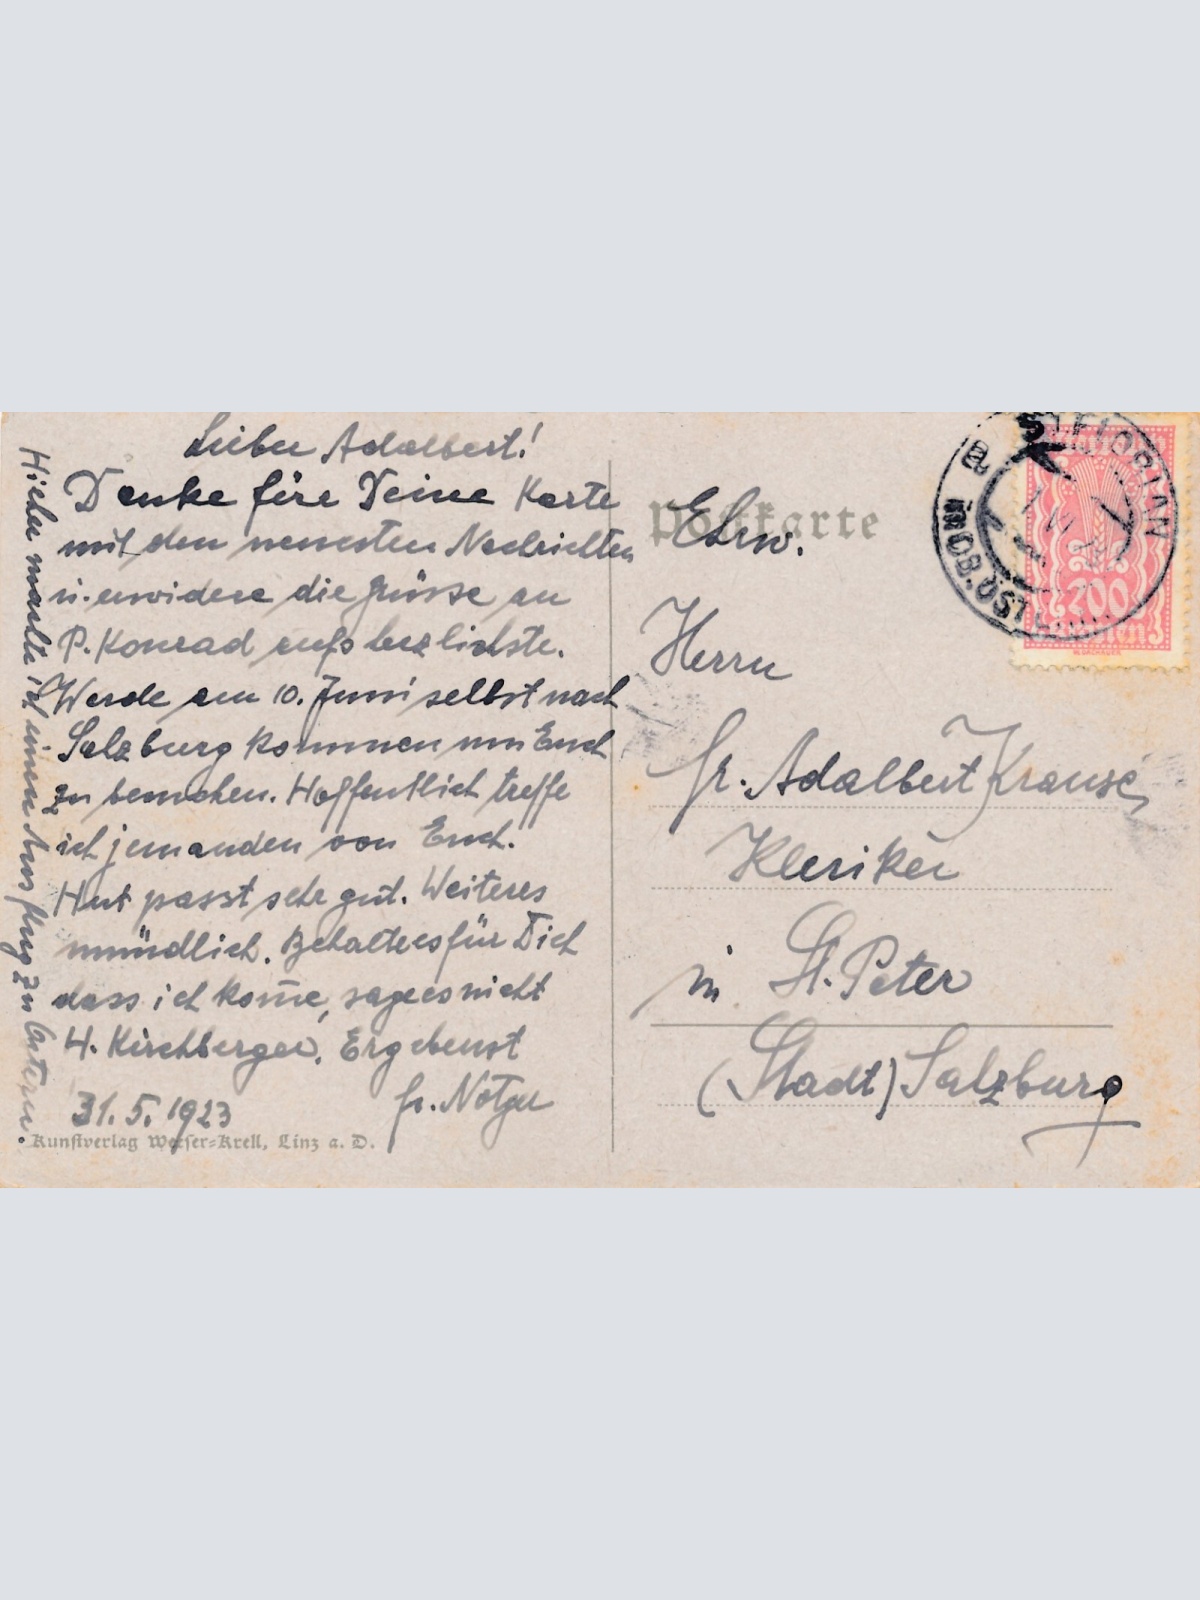 Lieber Adalbert!
Danke für Deine Karte
mit den neuesten Nachrichten
u. erwidere die Grüsse an
P. Konrad aufs herzlichste.
Werde am 10. Juni selbst nach
Salzburg kommen um Euch
zu besuchen. Hoffentlich treffe
ich jemanden von Euch.
Hut passt sehr gut. Weiteres
mündlich. Behalte es für Dich
dass ich kom̄e, sage es nicht
H. Kirchberger. Ergebenst
31.5.1923 fr. Notger
Hieher machte ich einen Ausflug
Kunstverlag Weeser-Krell, Linz a. D.
Postkarte
Ehrw.
Herrn
fr. Adalbert Krause,
Kleriker
in St. Peter
(Stadt) Salzburg
ST. FLORIAN
200
Kronen